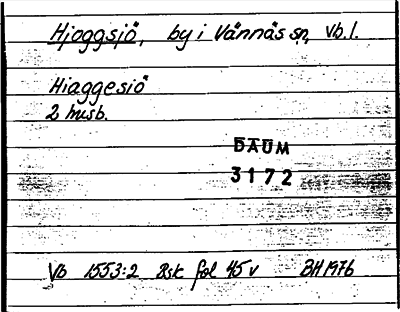 Hjoggsjö, by i Vännäs sn, Vb. l.
Hiaggesiö
2 husb.
DAUM
3172
Vb 1553:2 Bsk fol 45 v BH 1976